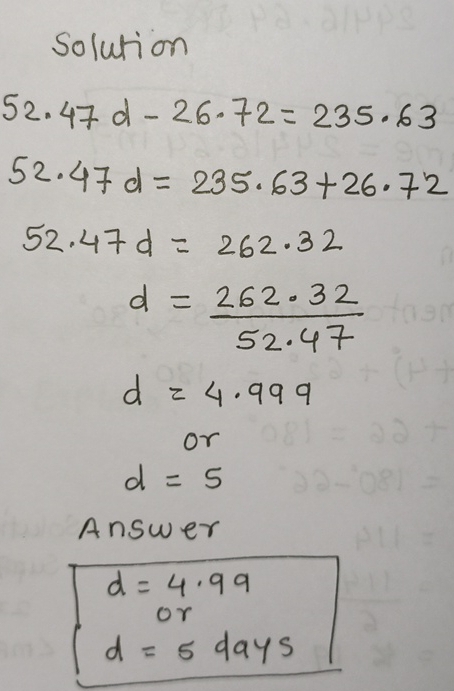 Solution
52.47 d - 26.72 = 235.63
52.47 d = 235.63 + 26.72
52.47 d = 262.32
d = 262.32
52.47
d = 4.999
or
d = 5
Answer
d = 4.99
or
d = 5 days